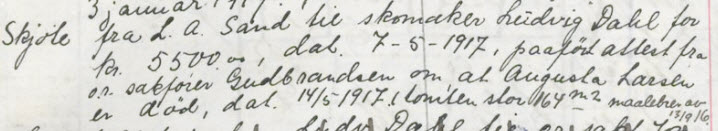 3 januar 1917.
Skjöte fra L. A. Sand til skomaker Ludvig Dahl for
kr. 5500.00, dat. 7-5-1917, paaført attest fra
o.r. sakfører Gudbrandsen om at Augusta Larsen
er død, dat. 14/5 1917. (tomten stor 164 m2 maalebrev av
13/9 16.
Dahl til